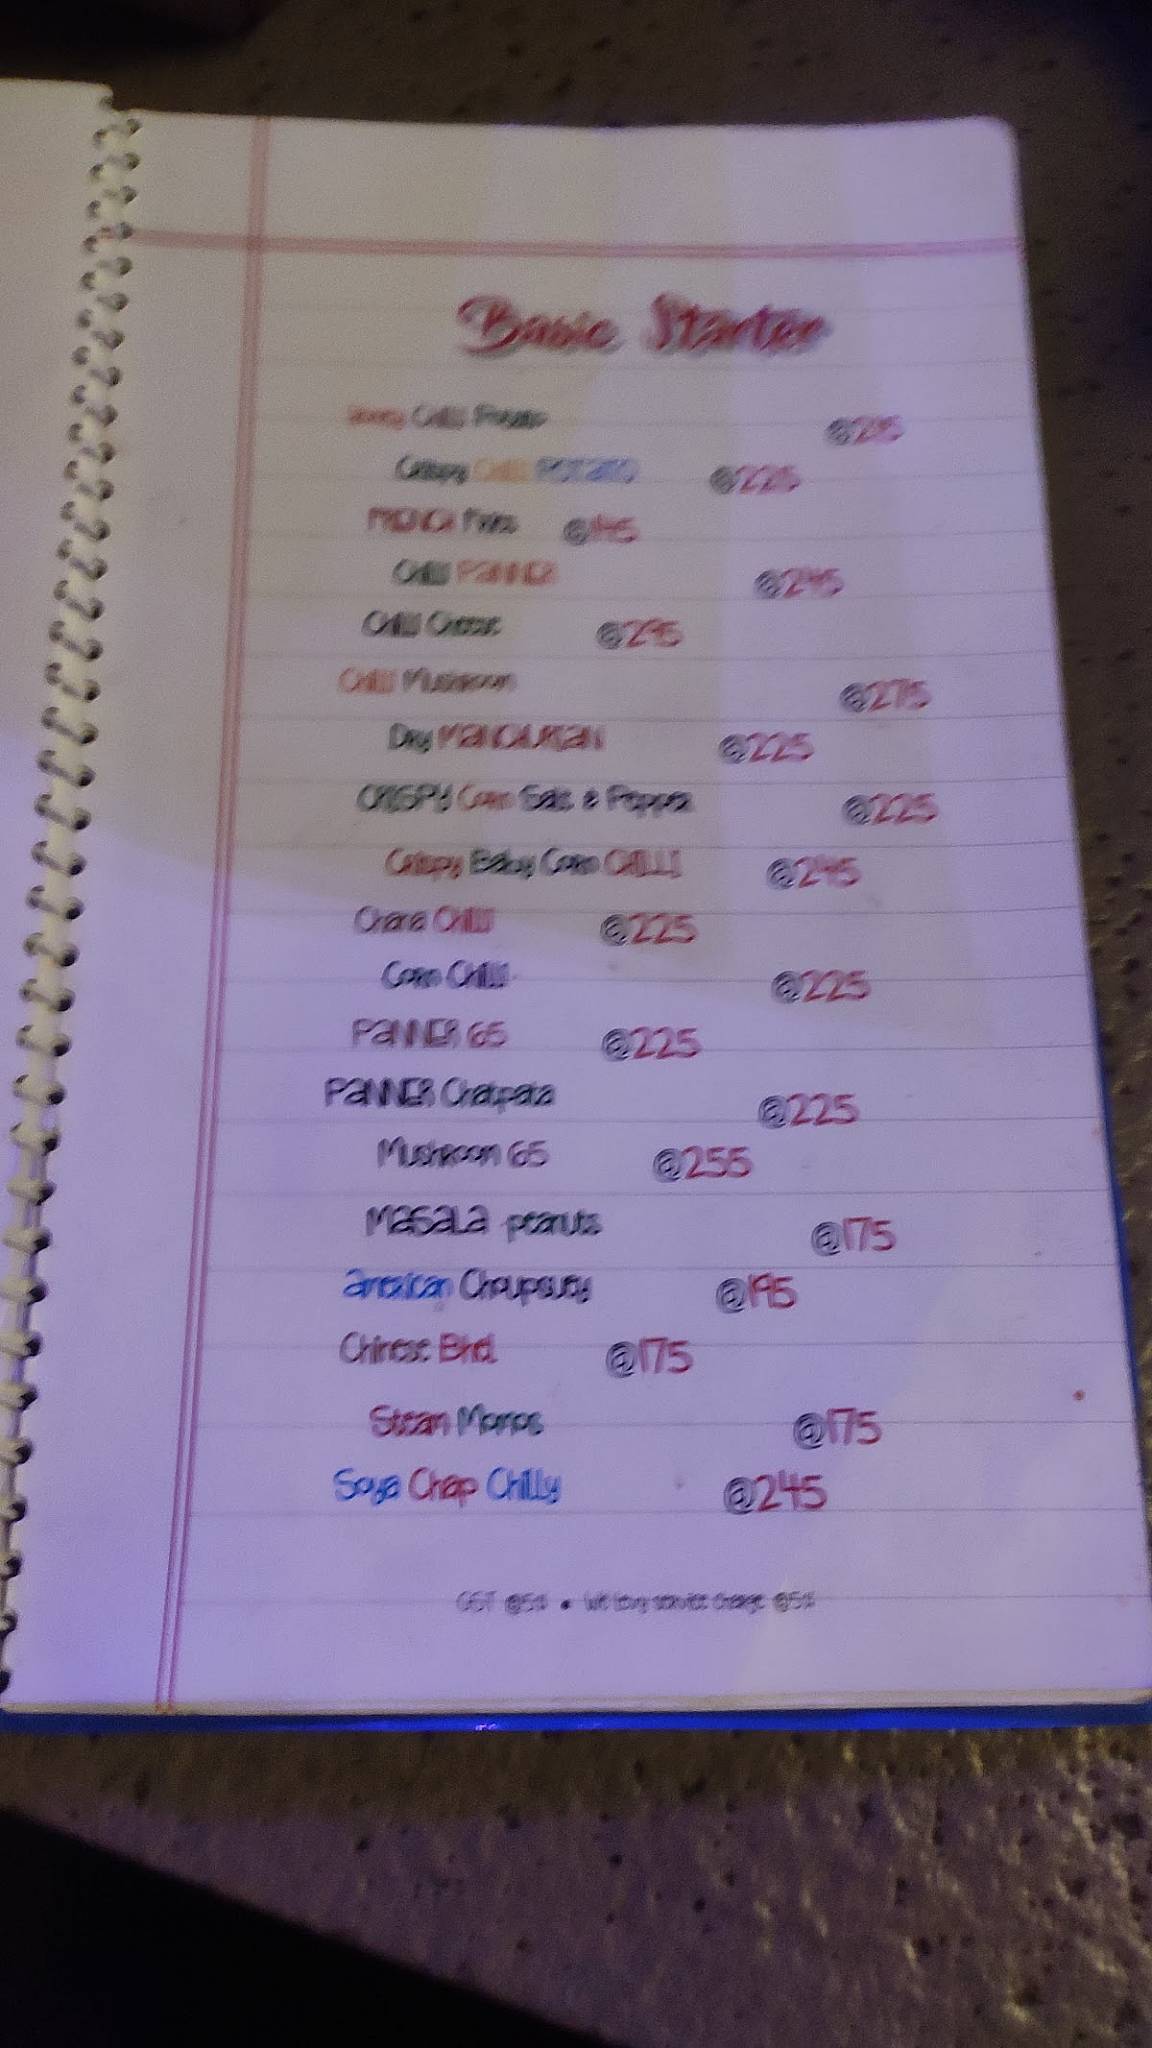 Basic Starter
Honey Chilli Potato @215
Crispy Chilli POTATO @225
FRENCH Fries @145
Chilli PANNER @245
Chilli Cheese @295
Chilli Mushroom @275
Dry MANCHURIAN @225
CRISPY Corn Salt & Pepper @225
Crispy Baby Corn CHILLI @245
Chana Chilli @225
Corn Chilli @225
PANNER 65 @225
PANNER Chatpata @225
Mushroom 65 @255
MASALA peanuts @175
American Choupsuey @195
Chinese Bhel @175
Steam Momos @175
Soya Chap Chilly @245
GST @5% • We levy service charge @5%